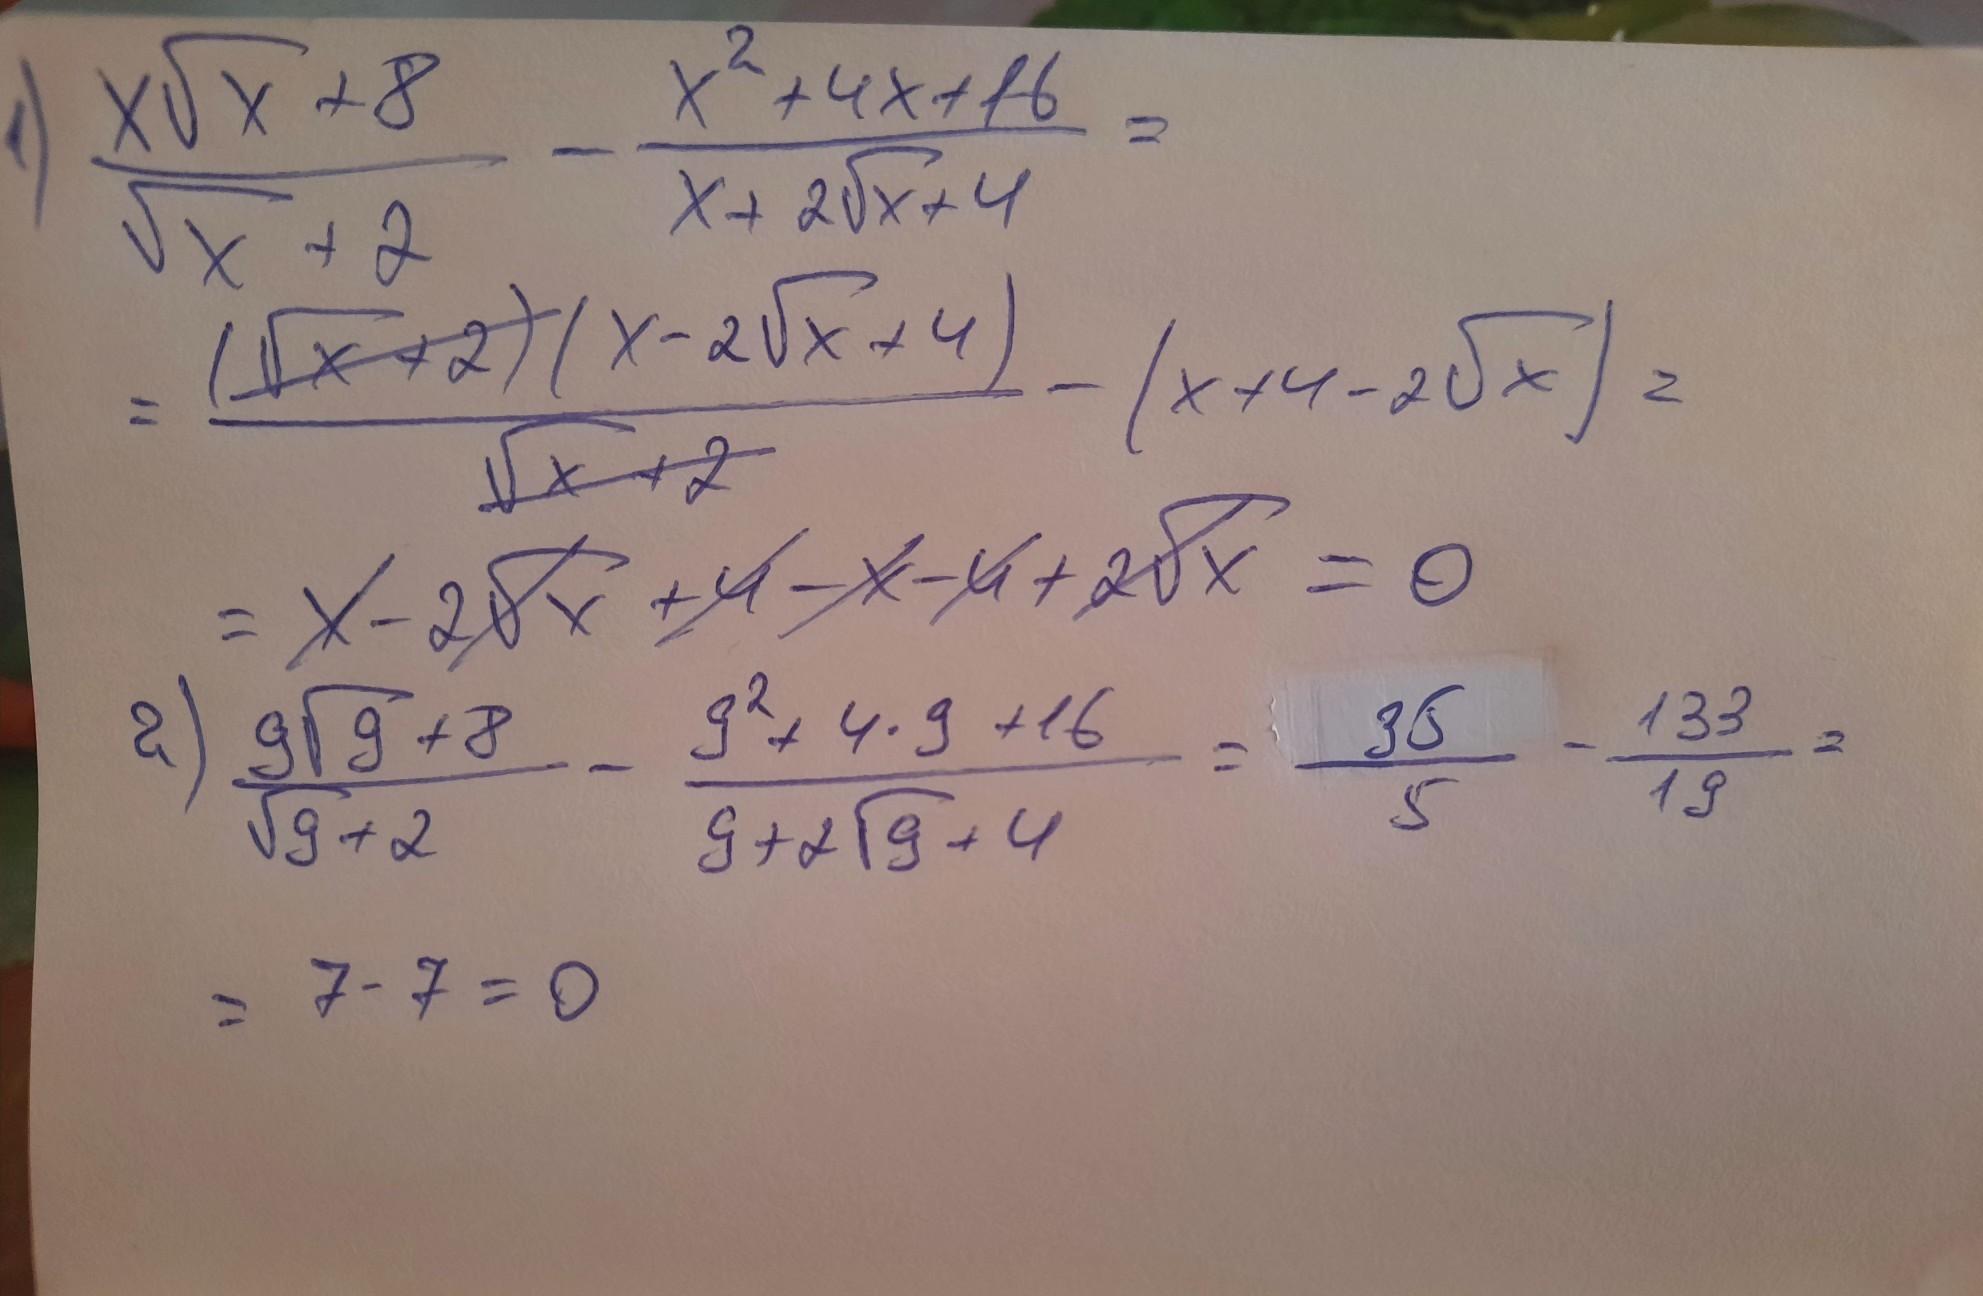 1) (x√x + 8)/(√x + 2) - (x² + 4x + 16)/(x + 2√x + 4) =
= ((√x + 2)(x - 2√x + 4))/(√x + 2) - (x + 4 - 2√x) =
= x - 2√x + 4 - x - 4 + 2√x = 0
2) (9√9 + 8)/(√9 + 2) - (9² + 4·9 + 16)/(9 + 2√9 + 4) = 35/5 - 133/19 =
= 7 - 7 = 0